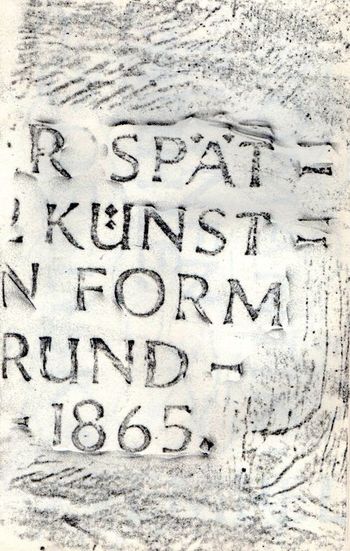 R SPÄT=
! KÜNST=
N FORM
RUND-
1865.